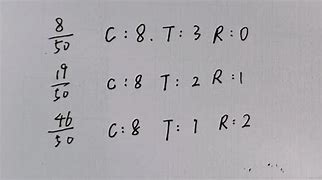 8/50 C:8. T:3 R:0
19/50 C:8 T:2 R:1
46/50 C:8 T:1 R:2